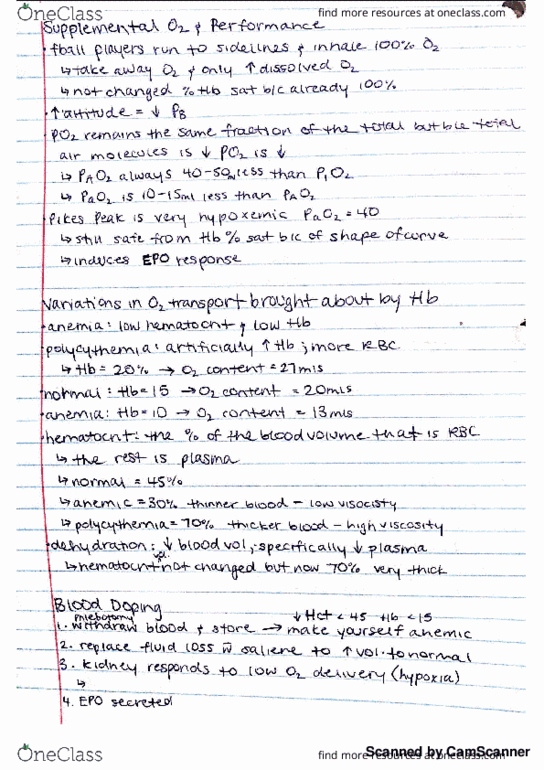 OneClass
find more resources at oneclass.com
Supplemental O₂ & Performance
· fball players run to sidelines & inhale 100% O₂
↳ take away O₂ & only ↑ dissolved O₂
↳ not changed % Hb sat b/c already 100%
· ↑ altitude = ↓ PB
· PO₂ remains the same fraction of the total but b/c total
air molecules is ↓ PO₂ is ↓
↳ PAO₂ always 40-50 less than PIO₂
↳ PaO₂ is 10-15ml less than PAO₂
· Pikes Peak is very hypoxemic PaO₂ = 40
↳ still safe from Hb % sat b/c of shape of curve
↳ induces EPO response
Variations in O₂ transport brought about by Hb
· anemia: low hematocrit & low Hb
· polycythemia: artificially ↑ Hb; more RBC
↳ Hb = 20% → O₂ content = 27mls
· normal: Hb = 15 → O₂ content = 20mls
· anemia: Hb = 10 → O₂ content = 13mls
· hematocrit: the % of the blood volume that is RBC
↳ the rest is plasma
↳ normal = 45%
↳ anemic = 30% thinner blood - low visocisty
↳ polycythemia = 70% thicker blood - high viscosity
· dehydration: ↓ blood vol, specifically ↓ plasma
vol.
↳ hematocrit not changed but now 70% very thick
Blood Doping
phlebotomy ↓ Hct < 45 Hb < 15
1. withdraw blood & store → make yourself anemic
2. replace fluid loss w̄ saliene to ↑ vol. to normal
3. kidney responds to low O₂ delivery (hypoxia)
↳
4. EPO secreted
OneClass
find more resources at oneclass.com
Scanned by CamScanner